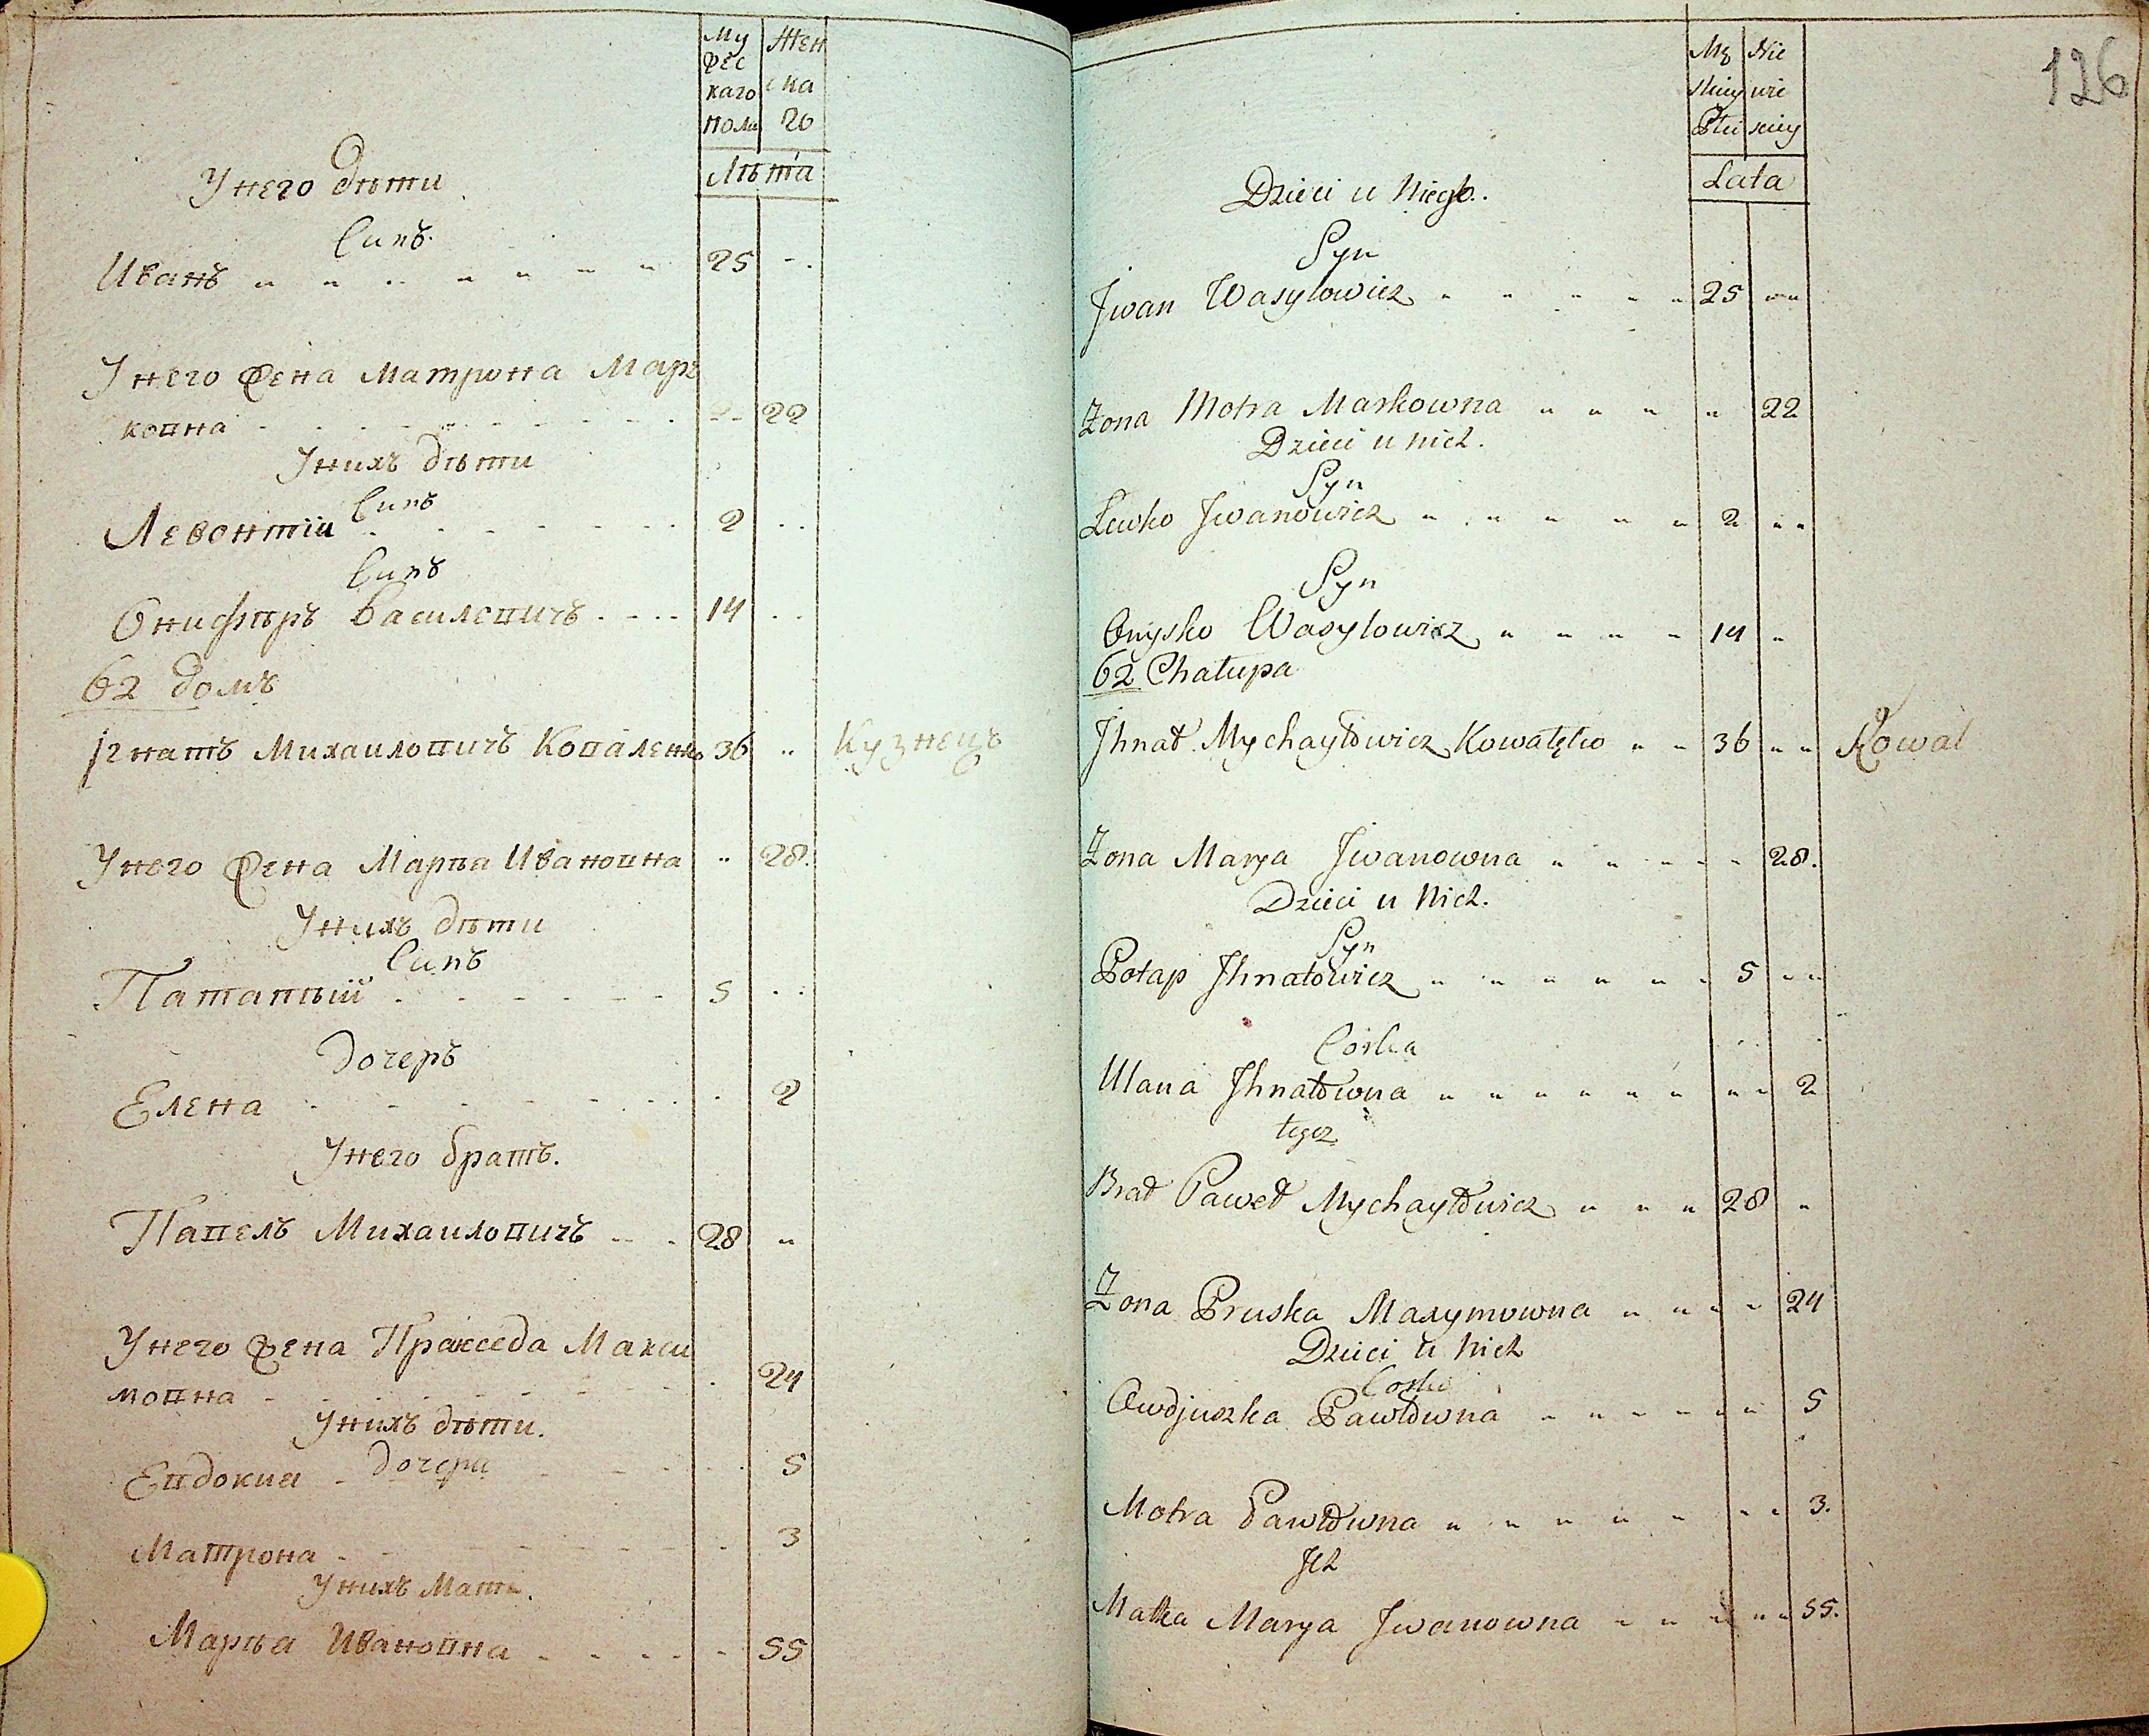 Му Жен
жес ска
каго го
полу
Лѣта
У него дѣти
Синъ
Иванъ 25
У него жена Матрона Мар
ковна 22
У нихъ дѣти
Синъ
Левонтіи 2
Синъ
Онифѣръ Василевичъ 14
62 домъ
Ігнатъ Михаиловичъ Коваленко 36 Кузнецъ
У него жена Марѣа Ивановна 28.
У нихъ дѣти
Синъ
Патапѣй 5
дочеръ
Елена 2
У него братъ.
Павелъ Михаиловичъ 28
У него жена Пракседа Макси
мовна 24
У нихъ дѣти.
дочери
Евдокиа 5
Матрона 3
У нихъ Мать.
Марѣа Ивановна 55
126
Mę Nie
skiey wie
Płci sciey
Lata
Dzieci u Niego.
Syn
Jwan Wasylowicz 25
Żona Motra Markowna 22
Dzieci u nich.
Syn
Lewko Jwanowicz 2
Syn
Onysko Wasylowicz 14
62 Chałupa
Jhnat Mychayłowicz Kowalęko 36 Kowal
Żona Marya Jwanowna 28.
Dzieci u Nich.
Syn
Potap Jhnatowicz 5
Corka
Ulana Jhnatowna 2
tegoz
Brat Paweł Mychayłowicz 28
Żona Pruska Maxymowna 24
Dzieci u Nich
Corki
Awdjuszka Pawłowna 5
Motra Pawłowna 3.
Jch
Matka Marya Jwanowna 55.